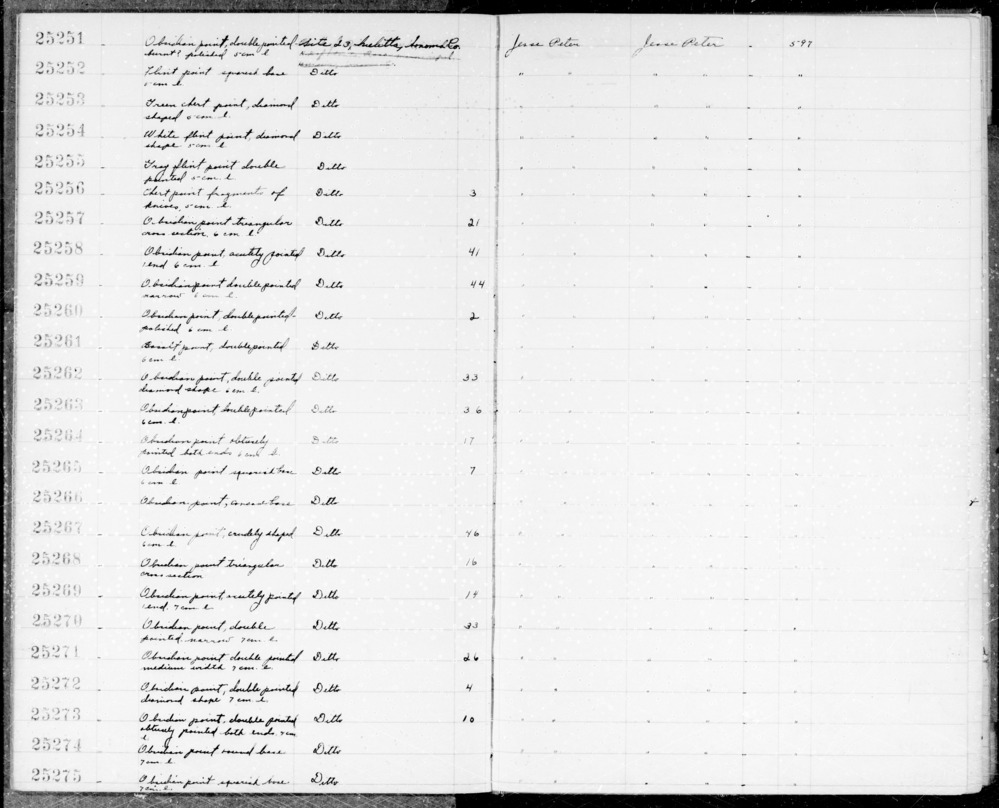 25251 Obsidian point, double pointed Site 23, Sonoma Co. Jesse Peter Jesse Peter - 597
burnt? polished 5 cm l.
25252 Flint point squarish base Ditto " " " " "
5 cm l.
25253 Green chert point, diamond Ditto " " " " "
shaped 5 cm l.
25254 White flint point, diamond Ditto " " " " "
shape 5 cm l.
25255 Gray flint point double Ditto " " " " "
pointed 5 cm l.
25256 Chert point fragments of Ditto 3 " " " " "
knives, 5 cm l.
25257 Obsidian point triangular Ditto 21 " " " " "
cross section, 6 cm l.
25258 Obsidian point, acutely pointed Ditto 41 " " " " "
end 6 cm. l.
25259 Obsidian point double pointed Ditto 44 " " " " "
narrow 6 cm l.
25260 Obsidian point, double pointed- Ditto 2 " " " " "
polished 6 cm l.
25261 Basalt point, double pointed Ditto " " " " "
6 cm l.
25262 Obsidian point, double pointed Ditto 33 " " " " "
diamond shape 6 cm l.
25263 Obsidian point, double pointed Ditto 36 " " " " "
6 cm. l.
25264 Obsidian point obtusely Ditto 17 " " " " "
pointed both ends 6 cm l.
25265 Obsidian point squarish base Ditto 7 " " " " "
6 cm l.
25266 Obsidian point, concave base Ditto " " " " "
25267 Obsidian point, crudely shaped Ditto 46 " " " " "
6 cm l.
25268 Obsidian point triangular Ditto 16 " " " " "
cross section
25269 Obsidian point acutely pointed Ditto 14 " " " " "
end, 7 cm l.
25270 Obsidian point, double Ditto 33 " " " " "
pointed narrow 7 cm. l.
25271 Obsidian point double pointed Ditto 26 " " " " "
medium width 7 cm. l.
25272 Obsidian point, double pointed Ditto 4 " " " " "
diamond shape 7 cm l.
25273 Obsidian point, double pointed Ditto 10 " " " " "
obtusely pointed both ends, 7 cm
l.
25274 Obsidian point round base Ditto " " " " "
7 cm l.
25275 Obsidian point squarish base Ditto " " " " "
7 cm l.